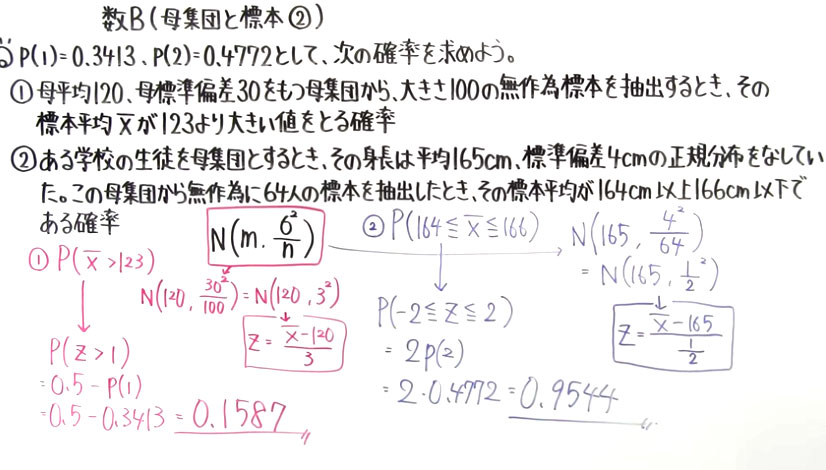 数B(母集団と標本②)
P(1)=0.3413、P(2)=0.4772として、次の確率を求めよう。
①母平均120、母標準偏差30をもつ母集団から、大きさ100の無作為標本を抽出するとき、その
標本平均x̄が123より大きい値をとる確率
②ある学校の生徒を母集団とするとき、その身長は平均165cm、標準偏差4cmの正規分布をなしてい
た。この母集団から無作為に64人の標本を抽出したとき、その標本平均が164cm以上166cm以下で
ある確率
N(m, σ²/n)
① P(x̄>123)
N(120, 30²/100)=N(120, 3²)
z = (x̄-120)/3
P(z>1)
=0.5-P(1)
=0.5-0.3413=0.1587
② P(164≦x̄≦166)
N(165, 4²/64)
= N(165, (1/2)²)
z = (x̄-165)/(1/2)
P(-2≦z≦2)
= 2p(2)
= 2・0.4772=0.9544